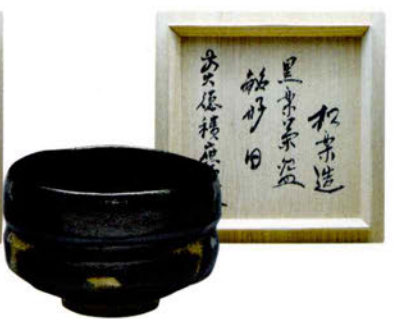 松楽造
黒楽茶盌
銘 好日
前大徳積應